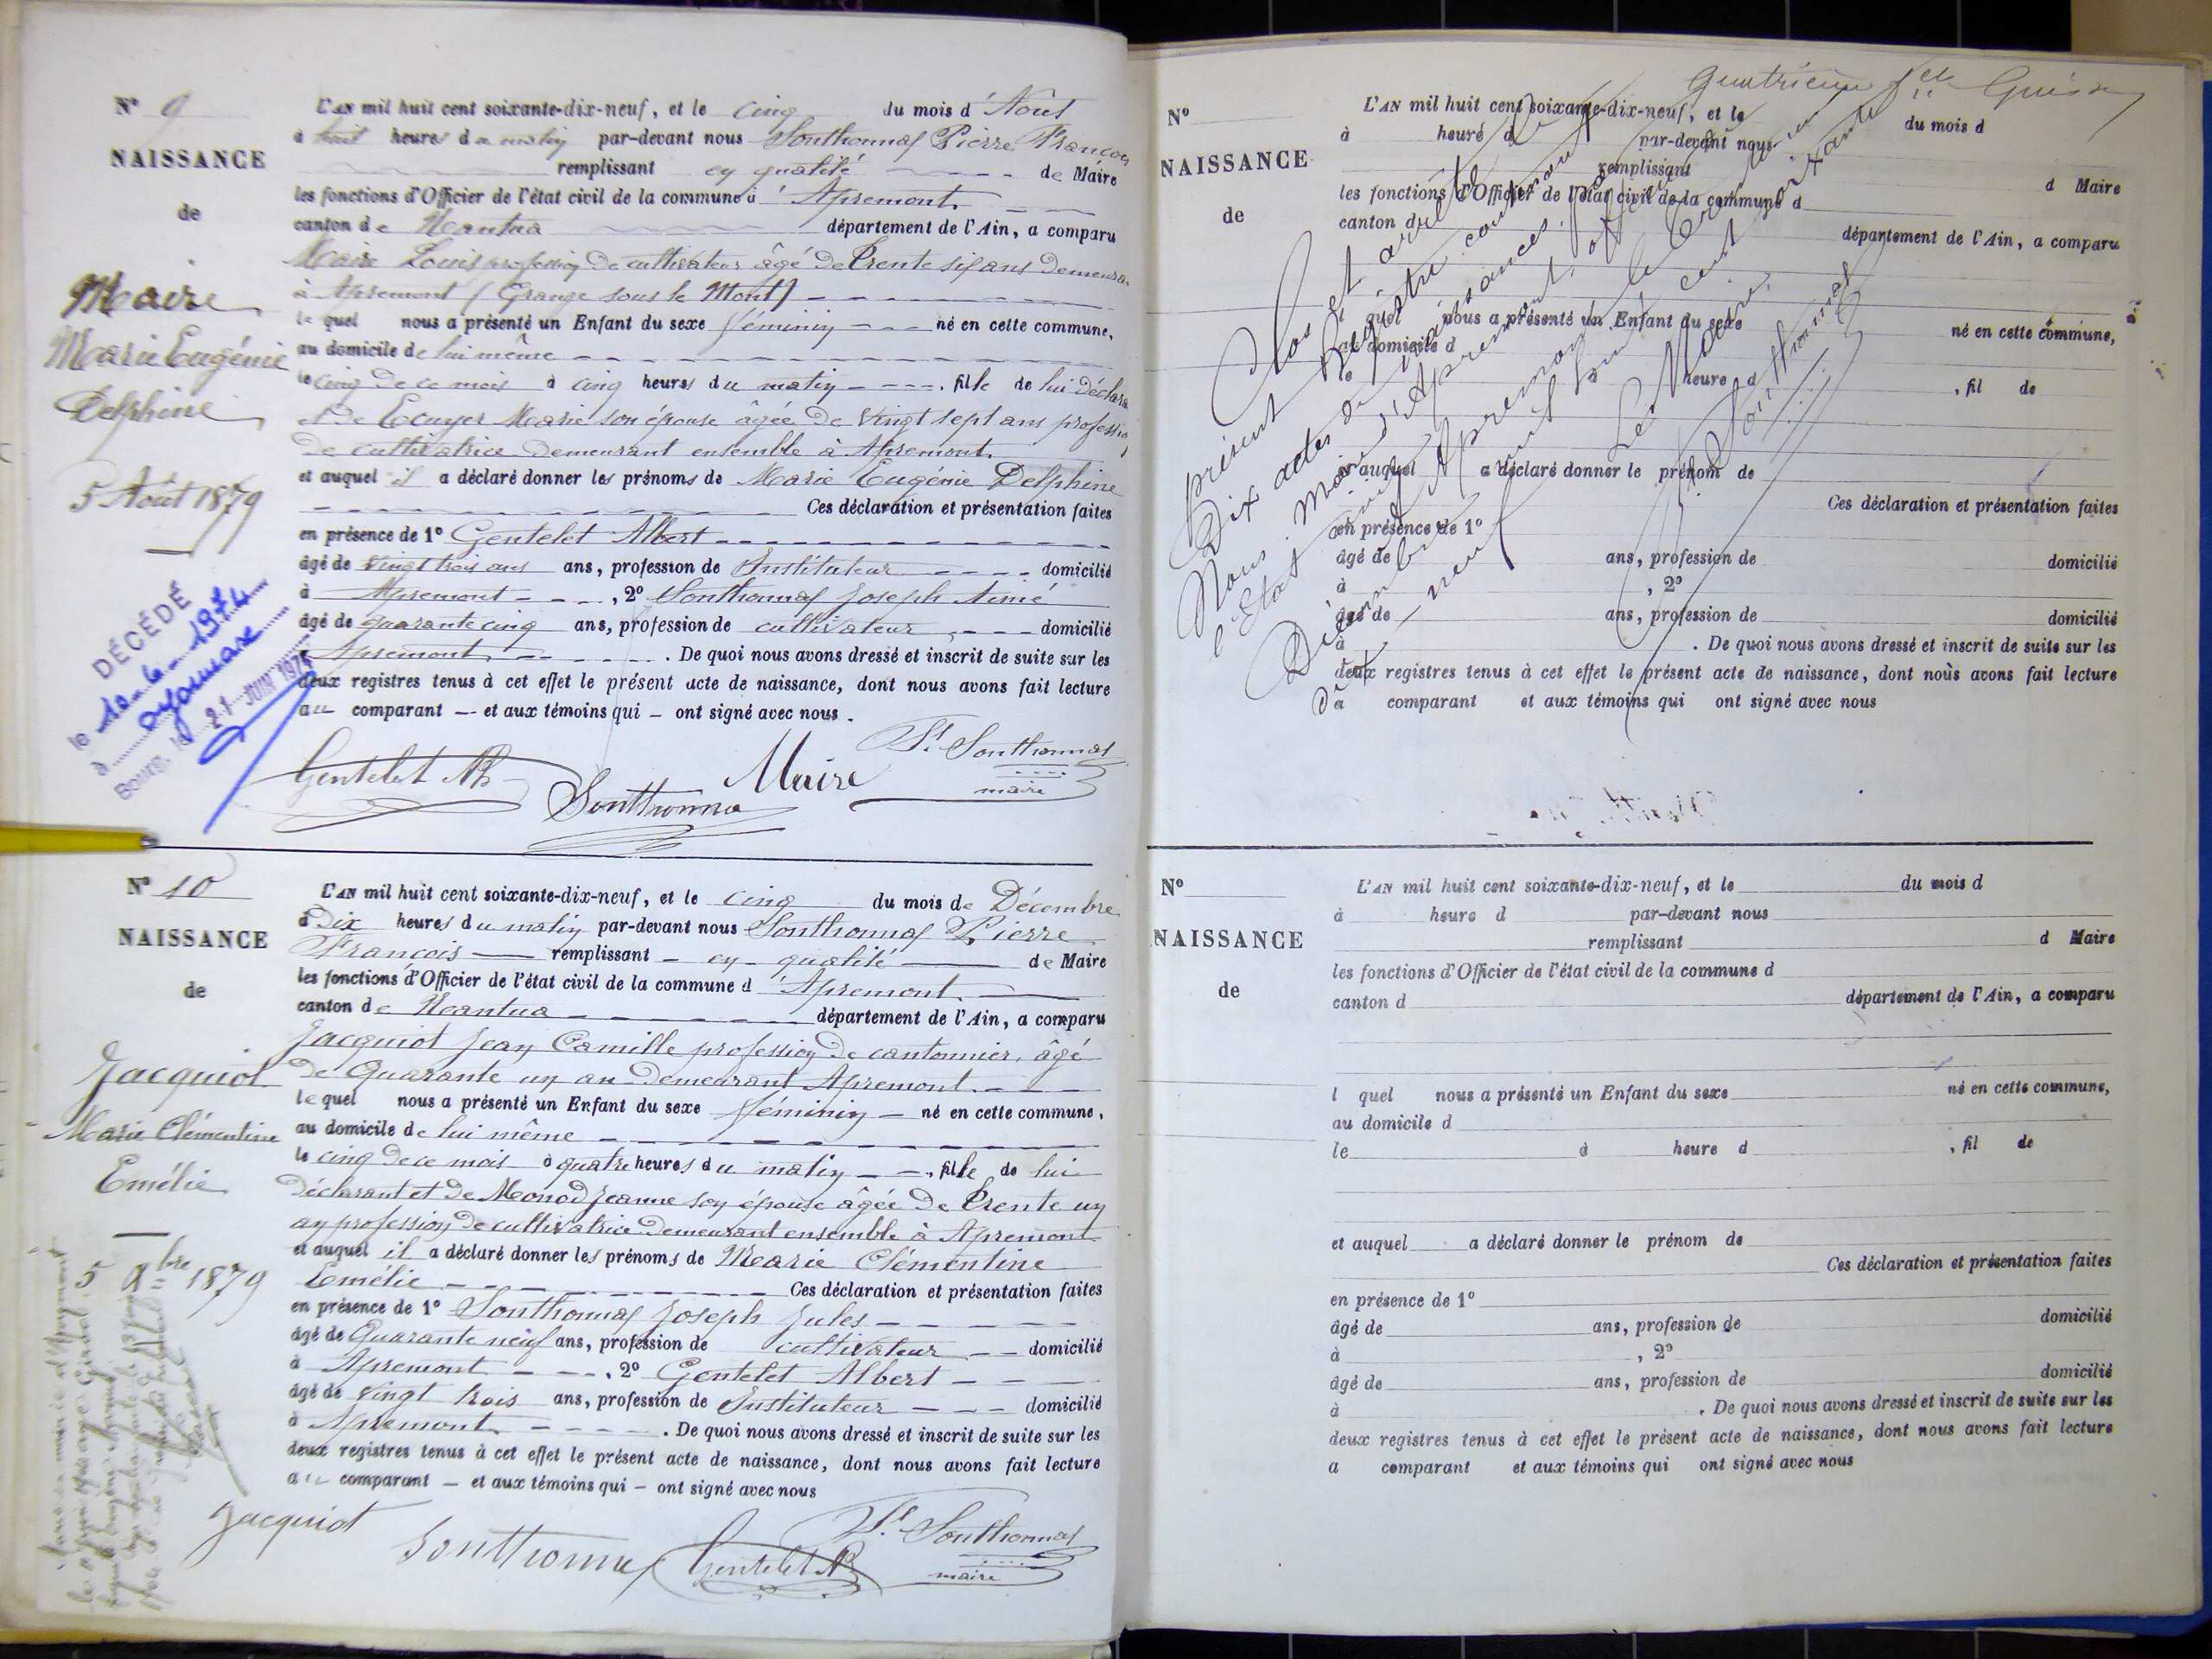 N° 9
NAISSANCE
de
Maire
Marie Eugénie
Delphine
5 Août 1879
DÉCÉDÉ
le 10-6-1974
à Oyonnax
21 JUIN 1974
L'AN mil huit cent soixante-dix-neuf, et le cinq du mois d'Août
à huit heures du matin par-devant nous Sonthonnax Pierre François
remplissant en qualité de Maire
les fonctions d'Officier de l'état civil de la commune d'Apremont
canton de Nantua département de l'Ain, a comparu
Maire Louis profession de cultivateur âgé de trente six ans demeurant
à Apremont (Grange sous le Mont)
le quel nous a présenté un Enfant du sexe féminin né en cette commune,
au domicile de lui même
le cinq de ce mois à cinq heures du matin, fille de lui déclarant
et de Ecuyer Marie son épouse âgée de vingt sept ans profession
de cultivatrice demeurant ensemble à Apremont.
et auquel il a déclaré donner les prénoms de Marie Eugénie Delphine
Ces déclaration et présentation faites
en présence de 1° Gentelet Albert
âgé de vingt trois ans ans, profession de Instituteur domicilié
à Apremont, 2° Sonthonnax Joseph Aimé
âgé de quarante cinq ans, profession de cultivateur domicilié
à Apremont. De quoi nous avons dressé et inscrit de suite sur les
deux registres tenus à cet effet le présent acte de naissance, dont nous avons fait lecture
au comparant et aux témoins qui ont signé avec nous.
Gentelet Ab
Sonthonnax
Maire
Pre Sonthonnax
maire
N° 10
NAISSANCE
de
Jacquiot
Marie Clémentine
Emélie
5 Xbre 1879
L'AN mil huit cent soixante-dix-neuf, et le cinq du mois de Décembre
à Dix heures du matin par-devant nous Sonthonnax Pierre
François remplissant en qualité de Maire
les fonctions d'Officier de l'état civil de la commune d'Apremont
canton de Nantua département de l'Ain, a comparu
Jacquiot Jean Camille profession de cantonnier, âgé
de Quarante un an demeurant Apremont.
le quel nous a présenté un Enfant du sexe féminin né en cette commune,
au domicile de lui même
le cinq de ce mois à quatre heures du matin, fille de lui
déclarant et de Monod Jeanne son épouse âgée de trente un
an profession de cultivatrice demeurant ensemble à Apremont
et auquel il a déclaré donner les prénoms de Marie Clémentine
Emélie Ces déclaration et présentation faites
en présence de 1° Sonthonnax Joseph Jules
âgé de Quarante neuf ans, profession de cultivateur domicilié
à Apremont, 2° Gentelet Albert
âgé de vingt trois ans, profession de Instituteur domicilié
à Apremont. De quoi nous avons dressé et inscrit de suite sur les
deux registres tenus à cet effet le présent acte de naissance, dont nous avons fait lecture
au comparant et aux témoins qui ont signé avec nous
Jacquiot
Sonthonnax
Gentelet Ab
Pre Sonthonnax
maire
N°
NAISSANCE
de
L'AN mil huit cent soixante-dix-neuf, et le du mois d
à heure d par-devant nous
remplissant d Maire
les fonctions d'Officier de l'état civil de la commune d
canton d département de l'Ain, a comparu
l quel nous a présenté un Enfant du sexe né en cette commune,
au domicile d
le à heure d , fil de
et auquel a déclaré donner le prénom de
Ces déclaration et présentation faites
en présence de 1°
âgé de ans, profession de domicilié
à , 2°
âgé de ans, profession de domicilié
à . De quoi nous avons dressé et inscrit de suite sur les
deux registres tenus à cet effet le présent acte de naissance, dont nous avons fait lecture
a comparant et aux témoins qui ont signé avec nous
Clos et arrêté le
présent Registre contenant
Dix actes de naissances. Par
Nous Maire d'Apremont, officier de
l'Etat civil à Apremont le trente un
Décembre mil huit cent soixante
dix neuf
Le Maire,
Pre Sonthonnax
N°
NAISSANCE
de
L'AN mil huit cent soixante-dix-neuf, et le du mois d
à heure d par-devant nous
remplissant d Maire
les fonctions d'Officier de l'état civil de la commune d
canton d département de l'Ain, a comparu
l quel nous a présenté un Enfant du sexe né en cette commune,
au domicile d
le à heure d , fil de
et auquel a déclaré donner le prénom de
Ces déclaration et présentation faites
en présence de 1°
âgé de ans, profession de domicilié
à , 2°
âgé de ans, profession de domicilié
à . De quoi nous avons dressé et inscrit de suite sur les
deux registres tenus à cet effet le présent acte de naissance, dont nous avons fait lecture
a comparant et aux témoins qui ont signé avec nous